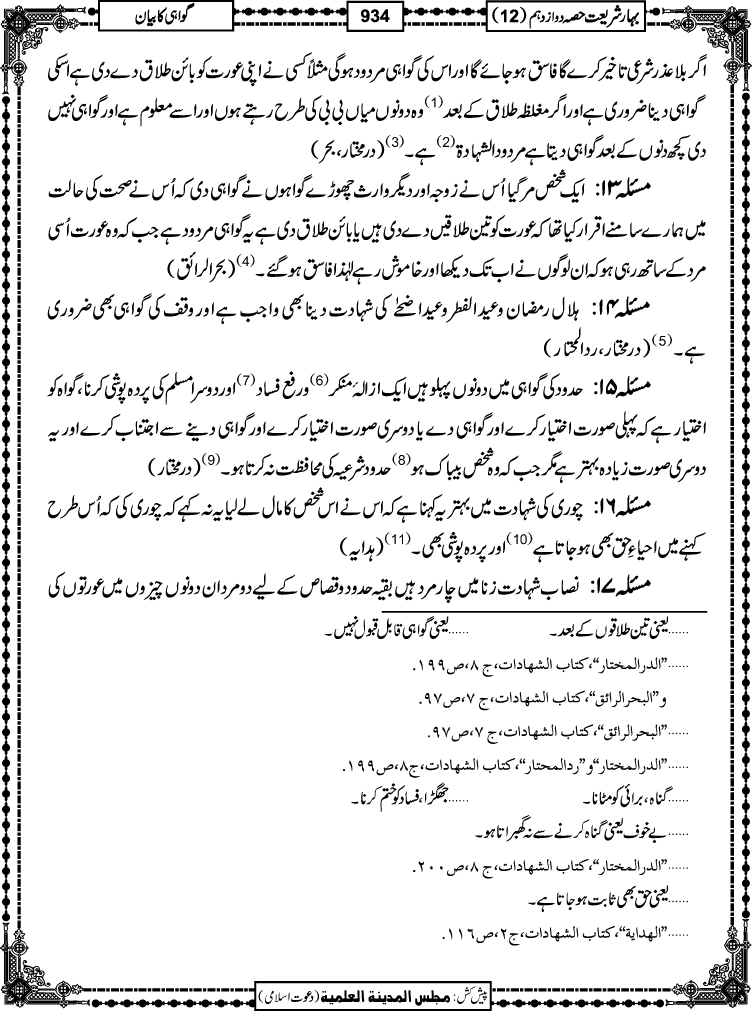 بہار شریعت حصہ دوازدہم (12)
934
گواہی کا بیان
اگر بلا عذر شرعی تاخیر کرے گا فاسق ہو جائے گا اور اس کی گواہی مردود ہوگی مثلاً کسی نے اپنی عورت کو بائن طلاق دے دی ہے اسکی
گواہی دینا ضروری ہے اور اگر مغلظہ طلاق کے بعد (1) وہ دونوں میاں بی بی کی طرح رہتے ہوں اور اسے معلوم ہے اور گواہی نہیں
دی کچھ دنوں کے بعد گواہی دیتا ہے مردود الشہادۃ (2) ہے۔ (3) (درمختار، بحر)
مسئلہ ۱۳: ایک شخص مرگیا اُس نے زوجہ اور دیگر وارث چھوڑے گواہوں نے گواہی دی کہ اُس نے صحت کی حالت
میں ہمارے سامنے اقرار کیا تھا کہ عورت کو تین طلاقیں دے دی ہیں یا بائن طلاق دی ہے یہ گواہی مردود ہے جب کہ وہ عورت اُسی
مرد کے ساتھ رہی ہو کہ ان لوگوں نے اب تک دیکھا اور خاموش رہے لہٰذا فاسق ہوگئے۔ (4) (بحرالرائق)
مسئلہ ۱۴: ہلال رمضان و عیدالفطر و عیداضحےٰ کی شہادت دینا بھی واجب ہے اور وقف کی گواہی بھی ضروری
ہے۔ (5) (درمختار، ردالمحتار)
مسئلہ ۱۵: حدود کی گواہی میں دونوں پہلو ہیں ایک ازالۂ منکر (6) و رفع فساد (7) اور دوسرا مسلم کی پردہ پوشی کرنا، گواہ کو
اختیار ہے کہ پہلی صورت اختیار کرے اور گواہی دے یا دوسری صورت اختیار کرے اور گواہی دینے سے اجتناب کرے اور یہ
دوسری صورت زیادہ بہتر ہے مگر جب کہ وہ شخص بیباک ہو (8) حدود شرعیہ کی محافظت نہ کرتا ہو۔ (9) (درمختار)
مسئلہ ۱۶: چوری کی شہادت میں بہتر یہ کہنا ہے کہ اس نے اس شخص کا مال لے لیا یہ نہ کہے کہ چوری کی کہ اُس طرح
کہنے میں احیاءِ حق بھی ہو جاتا ہے (10) اور پردہ پوشی بھی۔ (11) (ہدایہ)
مسئلہ ۱۷: نصاب شہادت زنا میں چار مرد ہیں بقیہ حدود و قصاص کے لیے دو مرد ان دونوں چیزوں میں عورتوں کی
......یعنی تین طلاقوں کے بعد۔ ......یعنی گواہی قابل قبول نہیں۔
......"الدرالمختار"، کتاب الشهادات، ج ۸، ص۱۹۹.
و "البحرالرائق"، کتاب الشهادات، ج ۷، ص۹۷.
......"البحرالرائق"، کتاب الشهادات، ج ۷، ص۹۷.
......"الدرالمختار" و "ردالمحتار"، کتاب الشهادات، ج۸، ص۱۹۹.
......گناہ، برائی کو مٹانا۔ ......جھگڑا، فساد کو ختم کرنا۔
......بے خوف یعنی گناہ کرنے سے نہ گھبراتا ہو۔
......"الدرالمختار"، کتاب الشهادات، ج ۸، ص۲۰۰.
......یعنی حق بھی ثابت ہو جاتا ہے۔
......"الهداية"، کتاب الشهادات، ج۲، ص۱۱۶.
پیش کش: مجلس المدينة العلمية (دعوت اسلامی)